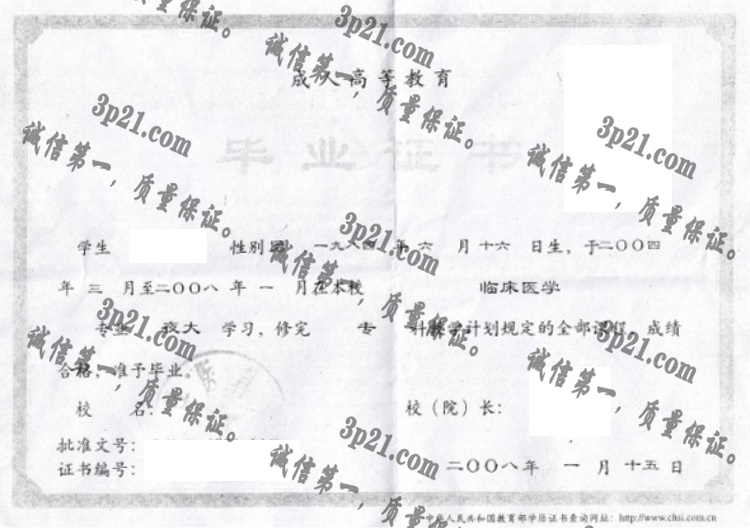 成人高等教育
毕业证书
学生 性别男 一九八四 年 六 月十六 日生,于二〇〇四
年 三 月至二〇〇八 年 一 月在本校 临床医学
专业 夜大 学习,修完 专 科教学计划规定的全部课程,成绩
合格,准予毕业。
校 名: 校(院)长:
批准文号:
证书编号: 二〇〇八年 一 月 十五 日
中华人民共和国教育部学历证书查询网址: http://www.chsi.com.cn
质量保证。
3p21.com
诚信第一,质量保证。
3p21.com
诚信第一,质量保证。
3p21.com
诚信第一,质量保证。
3p21.com
诚信第一,质量保证。
3p21.com
诚信第一,质量保证。
3p21.com
诚信第一,质量保证。
3p21.com
诚信第一,质量保证。